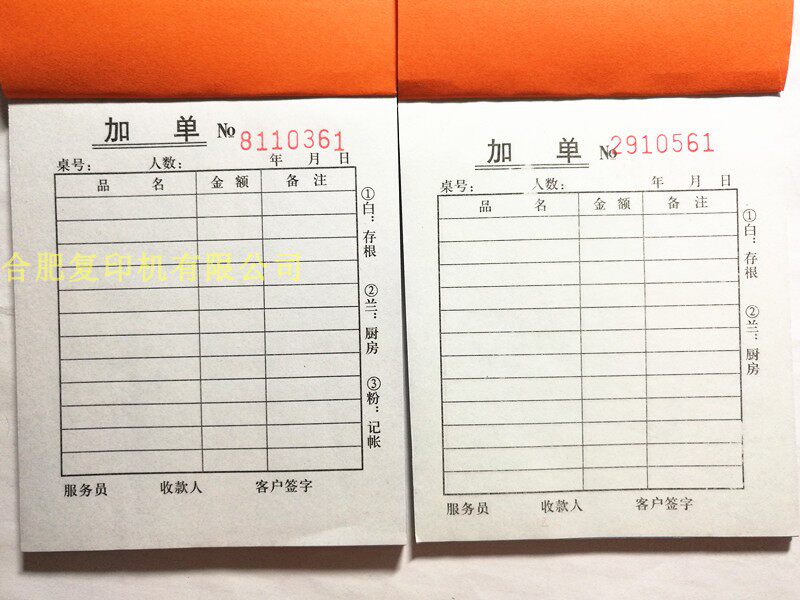 加 单 No 8110361
桌号： 人数： 年 月 日
品 名 金 额 备 注
①白：存根
②兰：厨房
③粉：记帐
服务员 收款人 客户签字
加 单 No 2910561
桌号： 人数： 年 月 日
品 名 金 额 备 注
①白：存根
②兰：厨房
服务员 收款人 客户签字
合肥复印机有限公司